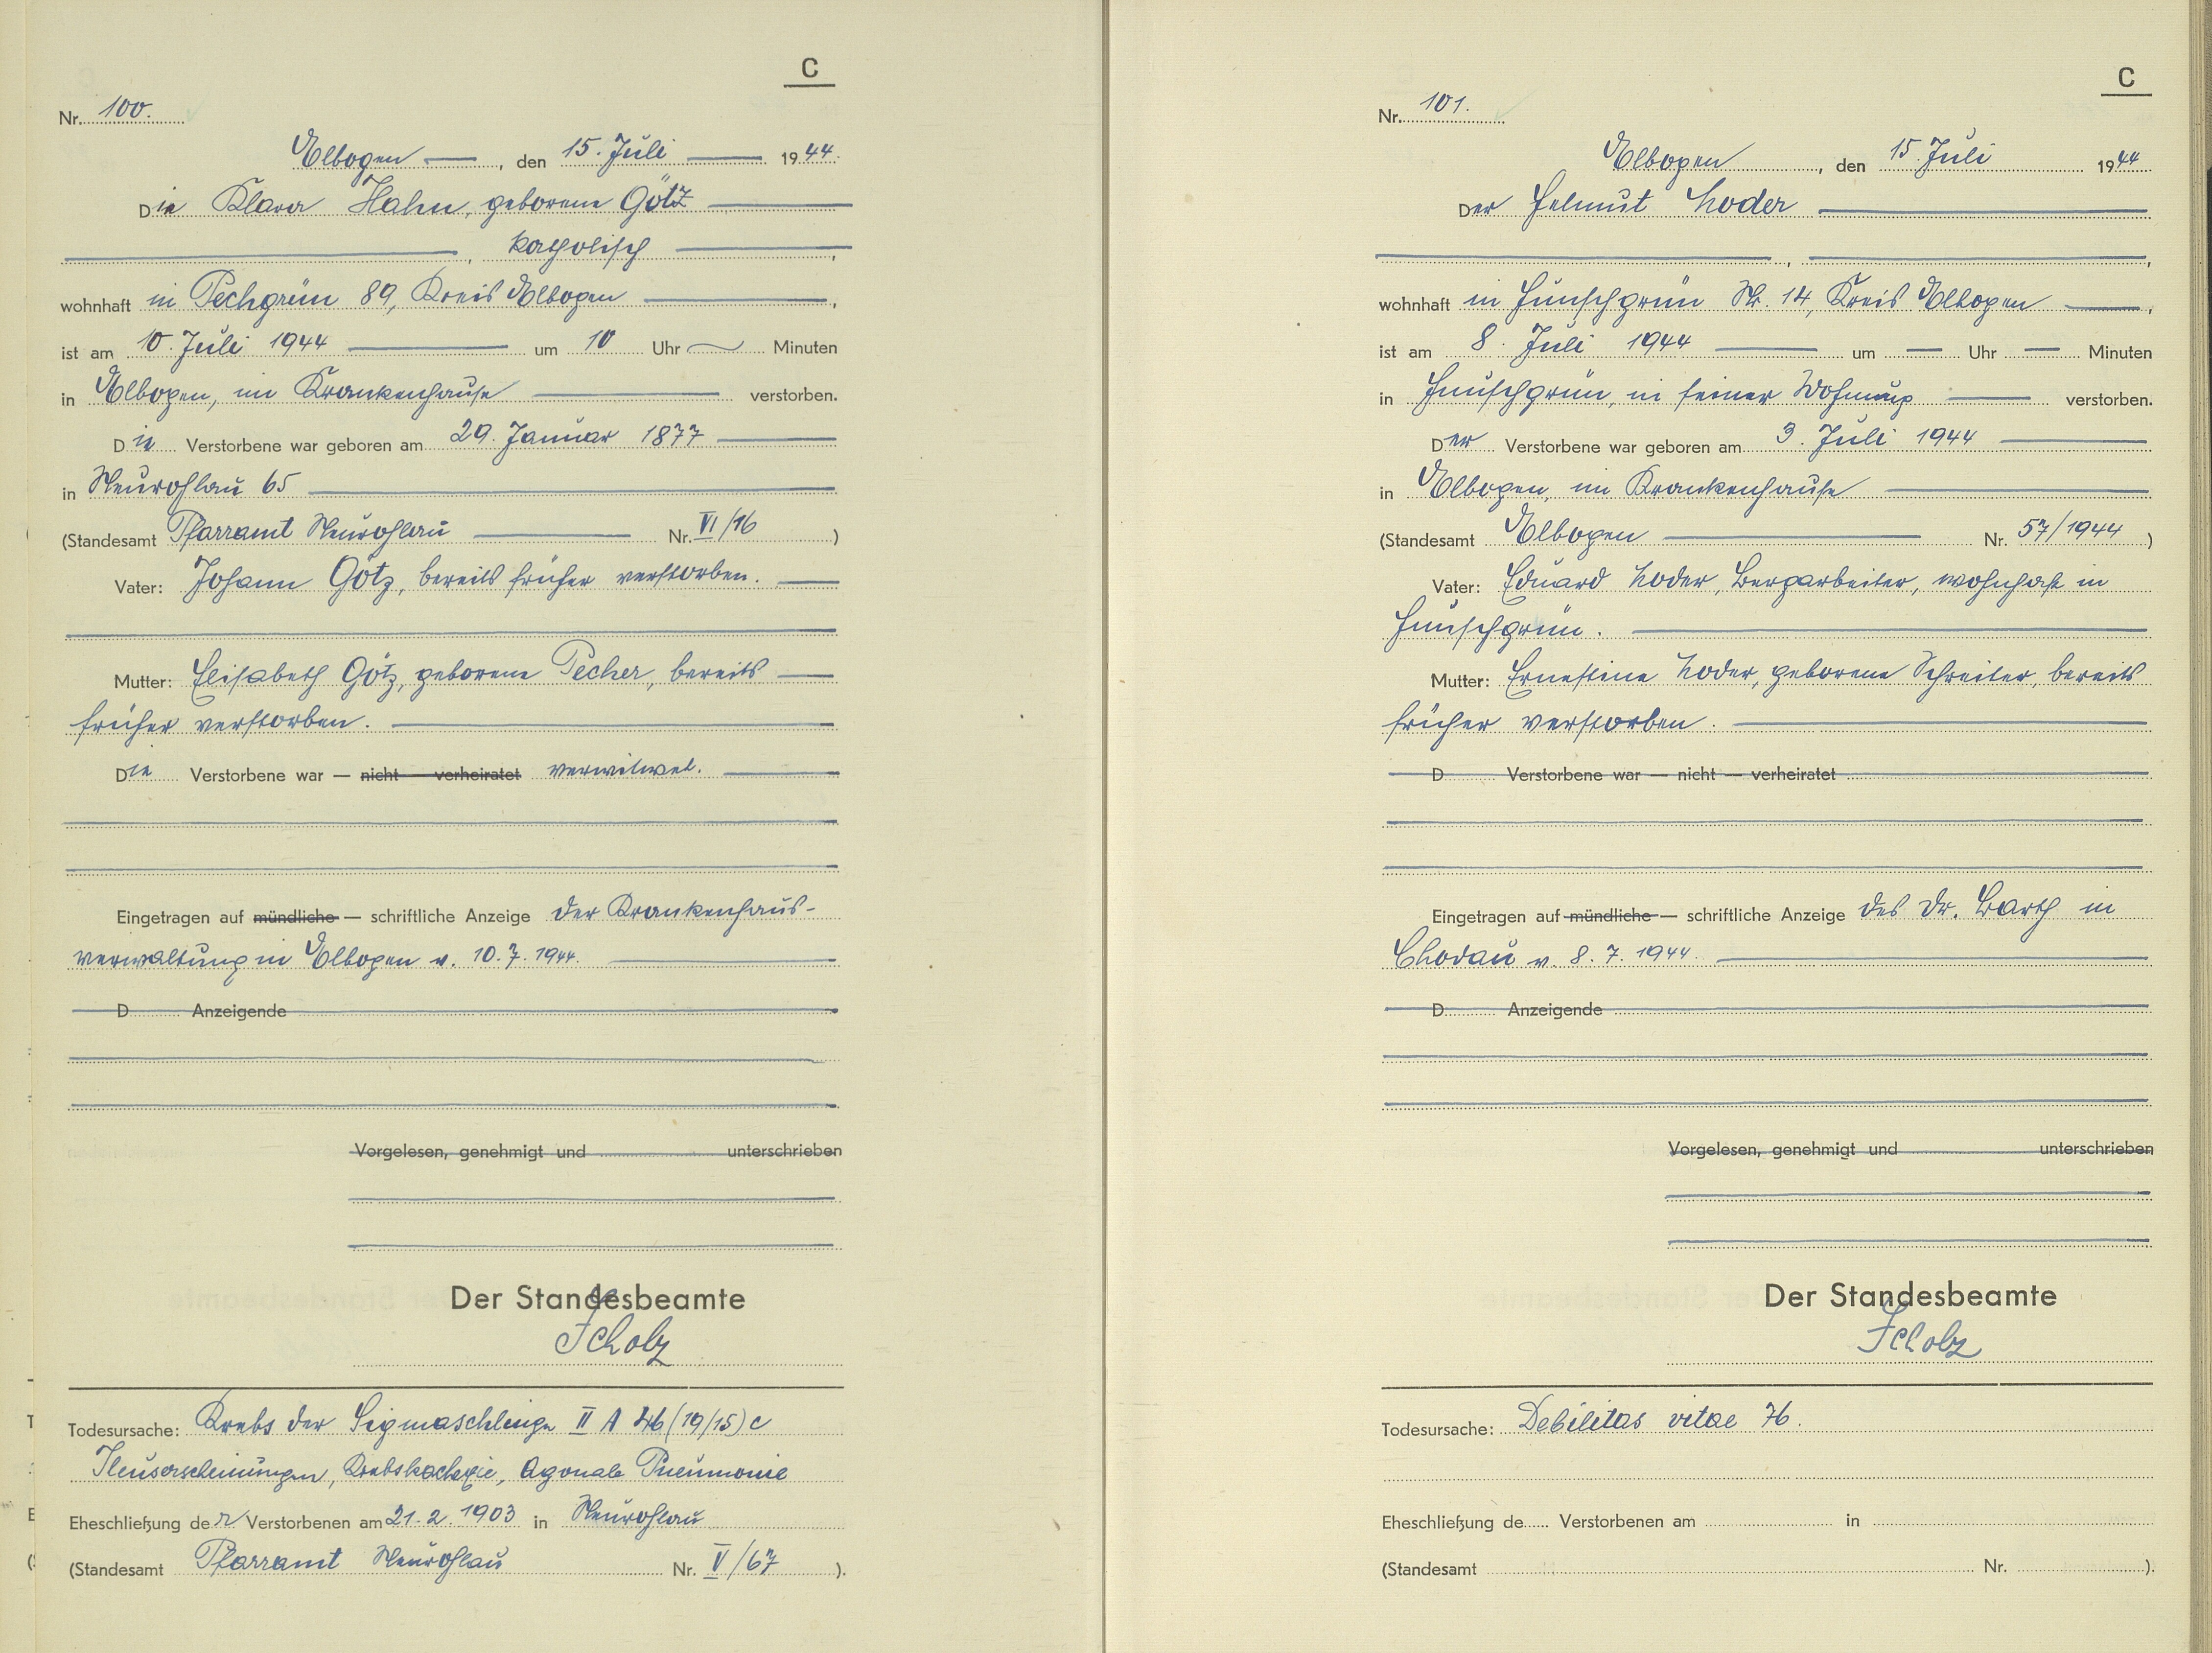 C
Nr. 100.
Elbogen, den 15. Juli 1944.
Die Klara Hahn, geborene Götz
, katholisch ,
wohnhaft in Pechgrün 89, Kreis Elbogen ,
ist am 10. Juli 1944 um 10 Uhr Minuten
in Elbogen, im Krankenhause verstorben.
Die Verstorbene war geboren am 29. Januar 1877
in Neurohlau 65
(Standesamt Pfarramt Neurohlau Nr. VI/16 )
Vater: Johann Götz, bereits früher verstorben.
Mutter: Elisabeth Götz, geborene Pecher, bereits
früher verstorben.
Die Verstorbene war — nicht — verheiratet verwitwet.
Eingetragen auf mündliche — schriftliche Anzeige der Krankenhaus-
verwaltung in Elbogen v. 10.7.1944.
D Anzeigende
Vorgelesen, genehmigt und unterschrieben
Der Standesbeamte
Scholz
Todesursache: Krebs der Sigmaschlinge II A 46 (19/15) c
Ileuserscheinungen, Krebskachexie, Agonale Pneumonie
Eheschließung der Verstorbenen am 21.2.1903 in Neurohlau
(Standesamt Pfarramt Neurohlau Nr. V/67 ).
C
Nr. 101.
Elbogen, den 15. Juli 1944
Der Helmut Loder
, ,
wohnhaft in Nr. 14, Kreis Elbogen ,
ist am 8. Juli 1944 um — Uhr — Minuten
in in seiner Wohnung verstorben.
Der Verstorbene war geboren am 3. Juli 1944
in Elbogen, im Krankenhause
(Standesamt Elbogen Nr. 57/1944 )
Vater: Eduard Loder, Bergarbeiter, wohnhaft in
Mutter: Ernestine Loder, geborene Schreiter, bereits
früher verstorben.
D Verstorbene war — nicht — verheiratet
Eingetragen auf mündliche — schriftliche Anzeige des Dr. Barth in
Chodau v. 8.7.1944.
D Anzeigende
Vorgelesen, genehmigt und unterschrieben
Der Standesbeamte
Scholz
Todesursache: Debilitas vitae 76.
Eheschließung de Verstorbenen am in
(Standesamt Nr. ).